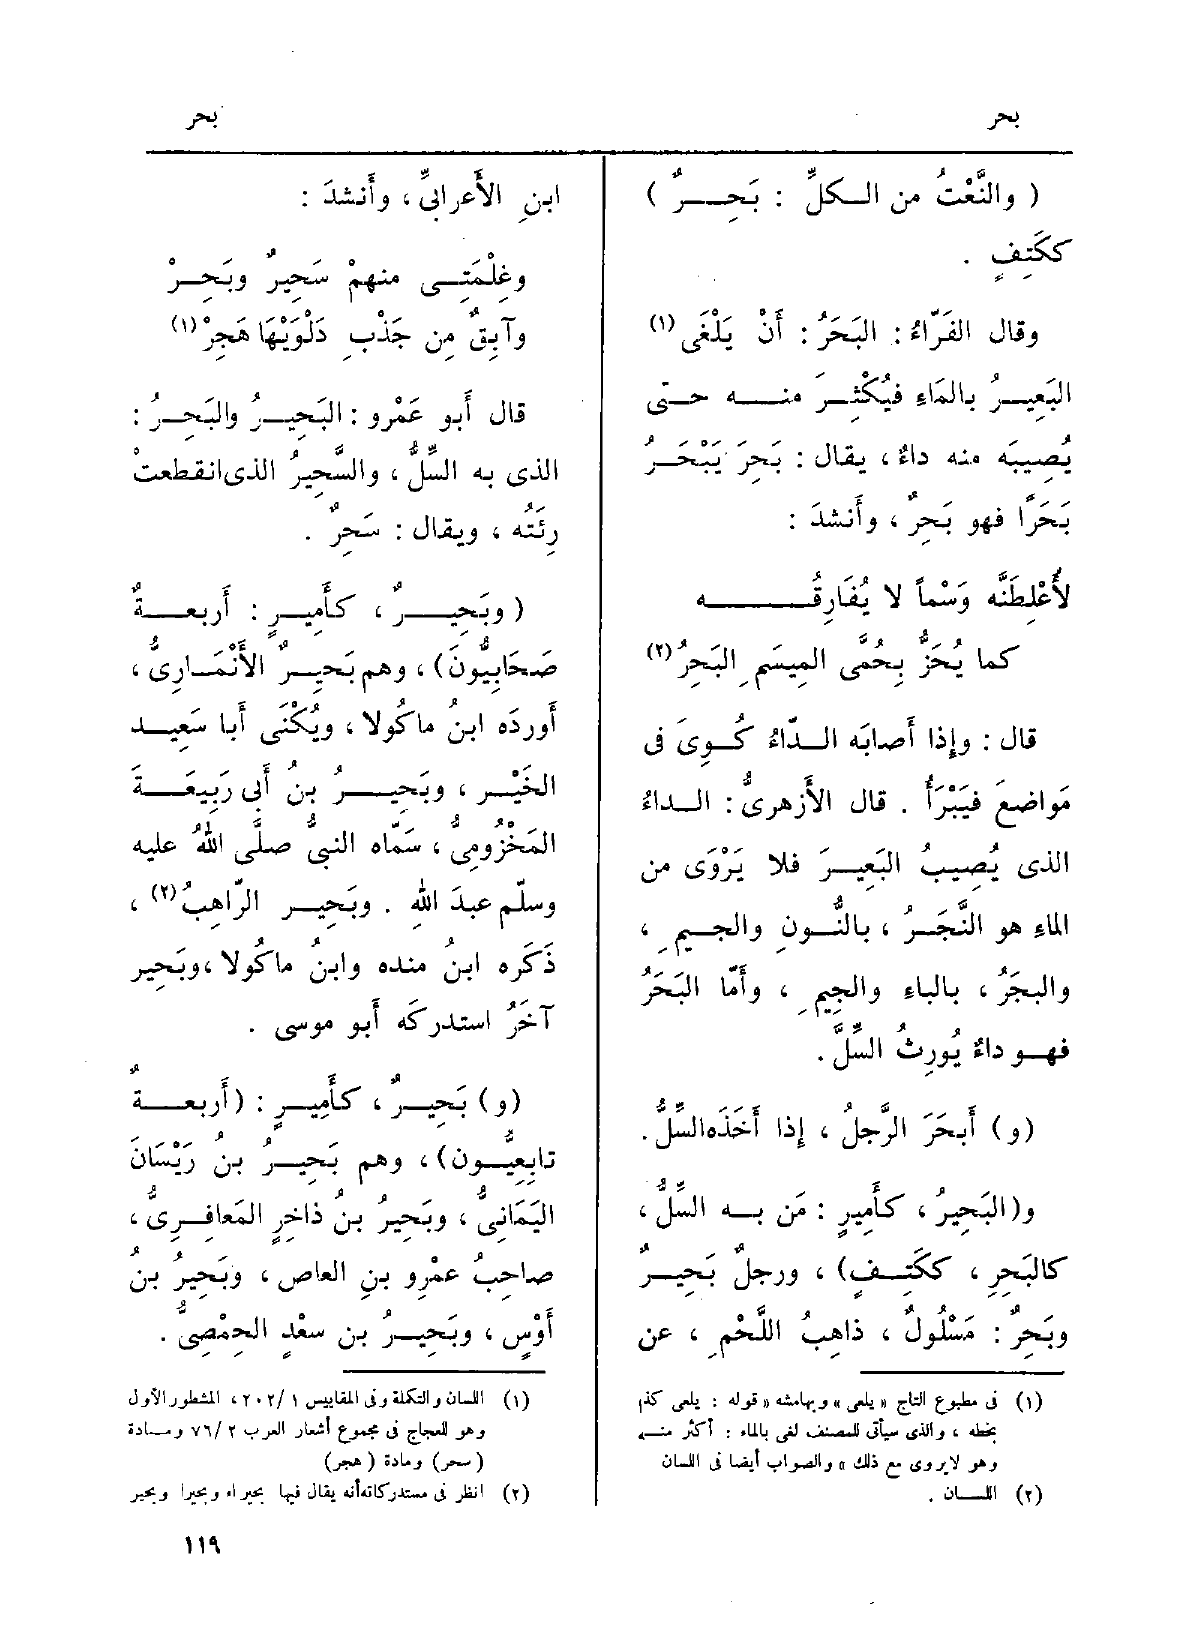 بحر
بحر
( والنَّعْتُ من الكلِّ : بَحِرٌ )
ككَتِفٍ .
وقال الفَرّاءُ : البَحَرُ : أَنْ يَلْغَى (١)
البَعِيرُ بالمَاءِ فيُكْثِرَ منه حتى
يُصِيبَه منه داءٌ ، يقال : بَحِرَ يَبْحَرُ
بَحَرًا فهو بَحِرٌ ، وأَنشدَ :
لأُعْلِطَنَّه وَسْماً لا يُفَارِقُه
كما يُحَزُّ بِحُمَّى المِيسَمِ البَحِرُ (٢)
قال : وإِذا أَصابَه الدّاءُ كُوِىَ فى
مَواضعَ فيَبْرَأُ . قال الأَزهرىُّ : الداءُ
الذى يُصِيبُ البَعِيرَ فلا يَرْوَى من
الماءِ هو النَّجَرُ ، بالنُّونِ والجيمِ ،
والبجَرُ ، بالباءِ والجِيمِ ، وأَمّا البَحَرُ
فهو داءٌ يُورِثُ السِّلَّ .
(و) أَبحَرَ الرَّجلُ ، إذا أَخَذَه السِّلُّ .
و(البَحِيرُ ، كأَميرٍ : مَن به السِّلُّ ،
كالبَحِرِ ، ككَتِفٍ) ، ورجلٌ بَحِيرٌ
وبَحِرٌ : مَسْلُولٌ ، ذاهِبُ اللَّحْمِ ، عن
(١) فى مطبوع التاج « يلعى » وبهامشه « قوله : يلعى كذا
بخطه ، والذى سيأتى للمصنف لغى بالماء : أكثر منه
وهو لايروى مع ذلك » والصواب أيضا فى اللسان
(٢) اللسان .
ابنِ الأَعرابىِّ ، وأَنشدَ :
وغِلْمَتِى منهمْ سَحِيرٌ وبَحِرْ
وآبِقٌ مِن جَذْبِ دَلْوَيْهَا هَجِرْ (١)
قال أَبو عَمْرو : البَحِيرُ والبَحِرُ :
الذى به السِّلُّ ، والسَّحِيرُ الذى انقطعتْ
رِئَتُه ، ويقال : سَحِرٌ .
( وبَحِيرٌ ، كأَمِيرٍ : أَربعةٌ
صَحَابِيُّونَ) ، وهم بَحِيرٌ الأَنْمَارِىُّ ،
أَوردَه ابنُ ماكُولا ، ويُكْنَى أَبا سَعِيد
الخَيْر ، وبَحِيرُ بنُ أَبى رَبِيعَةَ
المَخْزُومِىُّ ، سَمّاه النبىُّ صلَّى اللهُ عليه
وسلّم عبدَ اللهِ . وبَحِير الرّاهبُ (٢) ،
ذَكَره ابنُ منده وابنُ ماكُولا ، وبَحِير
آخَرُ استدركَه أَبو موسى .
(و) بَحِيرٌ ، كأَمِيرٍ : (أَربعةٌ
تابِعِيُّون) ، وهم بَحِيرُ بنُ رَيْسَانَ
اليَمَانِىُّ ، وبَحِيرُ بنُ ذاخِرٍ المَعافِرِىُّ ،
صاحبُ عَمْرِو بنِ العاص ، وبَحِيرُ بنُ
أَوْسٍ ، وبَحِيرُ بن سعْدٍ الحِمْصِىُّ .
(١) اللسان والتكلة وفى المقاييس ١ /٢٠٢ ، المشطور الأول
وهو للعجاج فى مجموع أشعار العرب ٢ /٧٦ ومادة
(سحر) ومادة (هجر)
(٢) انظر فى مستدركاته أنه يقال فيها بحيراء وبحيرا وبحير
١١٩